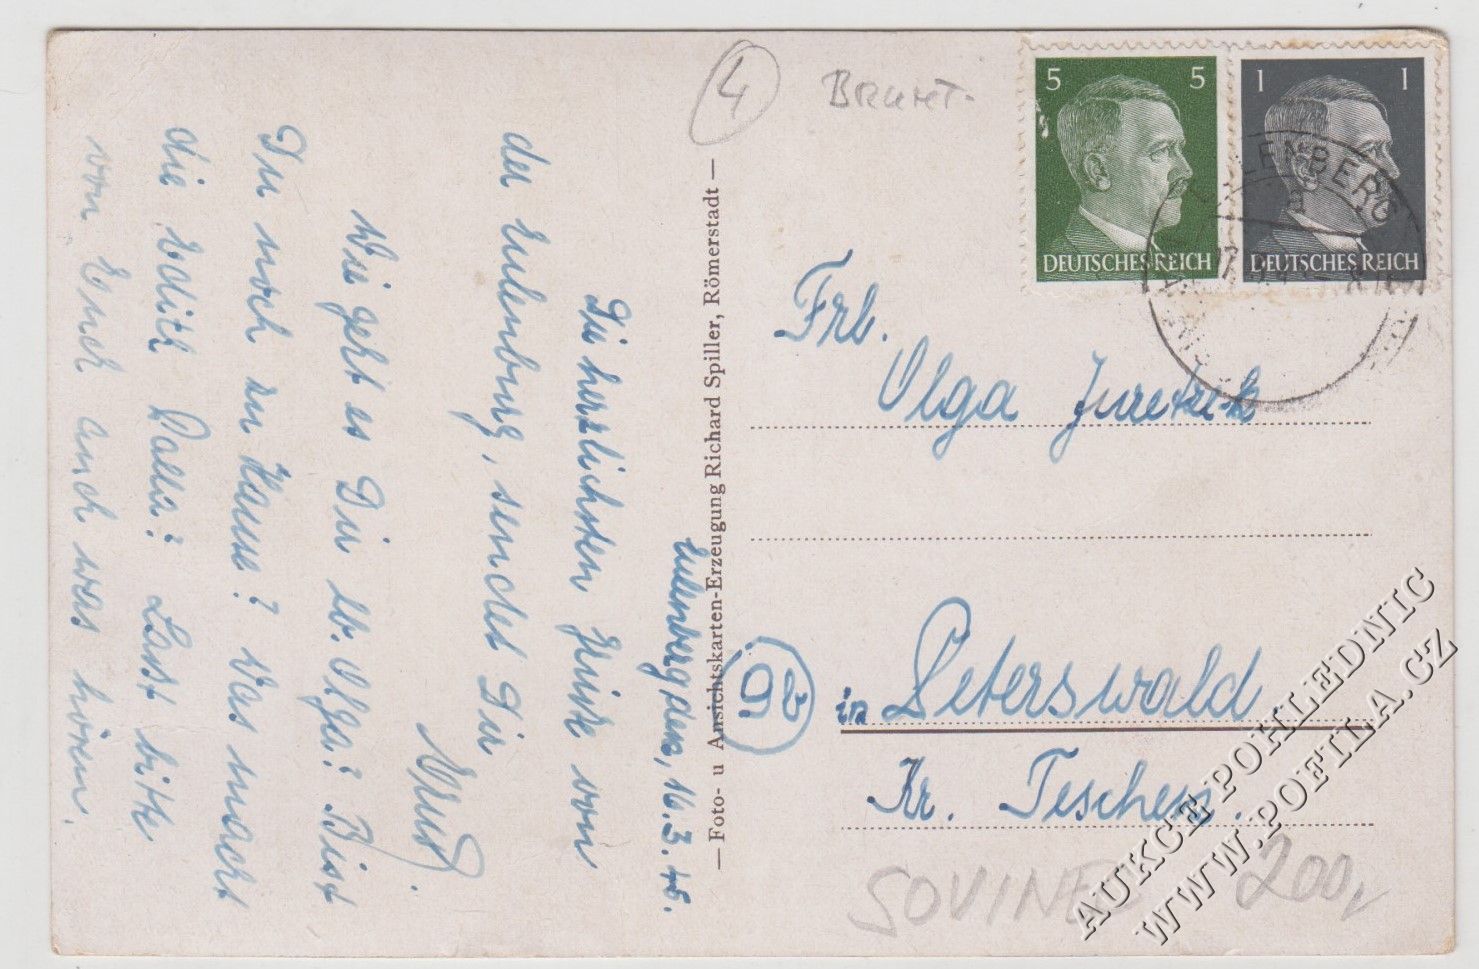 4
BRUNT.
5 5
DEUTSCHES REICH
1 1
DEUTSCHES REICH
ENBERG
Eulenberg den, 16.3.45.
Die herzlichsten Grüße von
der Eulenburg, sendet Dir
Wie geht es Dir lb. Olga? Bist
Du noch zu Hause? Was macht
die Edith Palla? Lasst bitte
von Euch auch was hören.
— Foto- u Ansichtskarten-Erzeugung Richard Spiller, Römerstadt —
Frl.
Olga
9b
in Peterswald.
Kr. Teschen.
SOVINEC 200,
AUKCE POHLEDNIC
WWW.POFILA.CZ